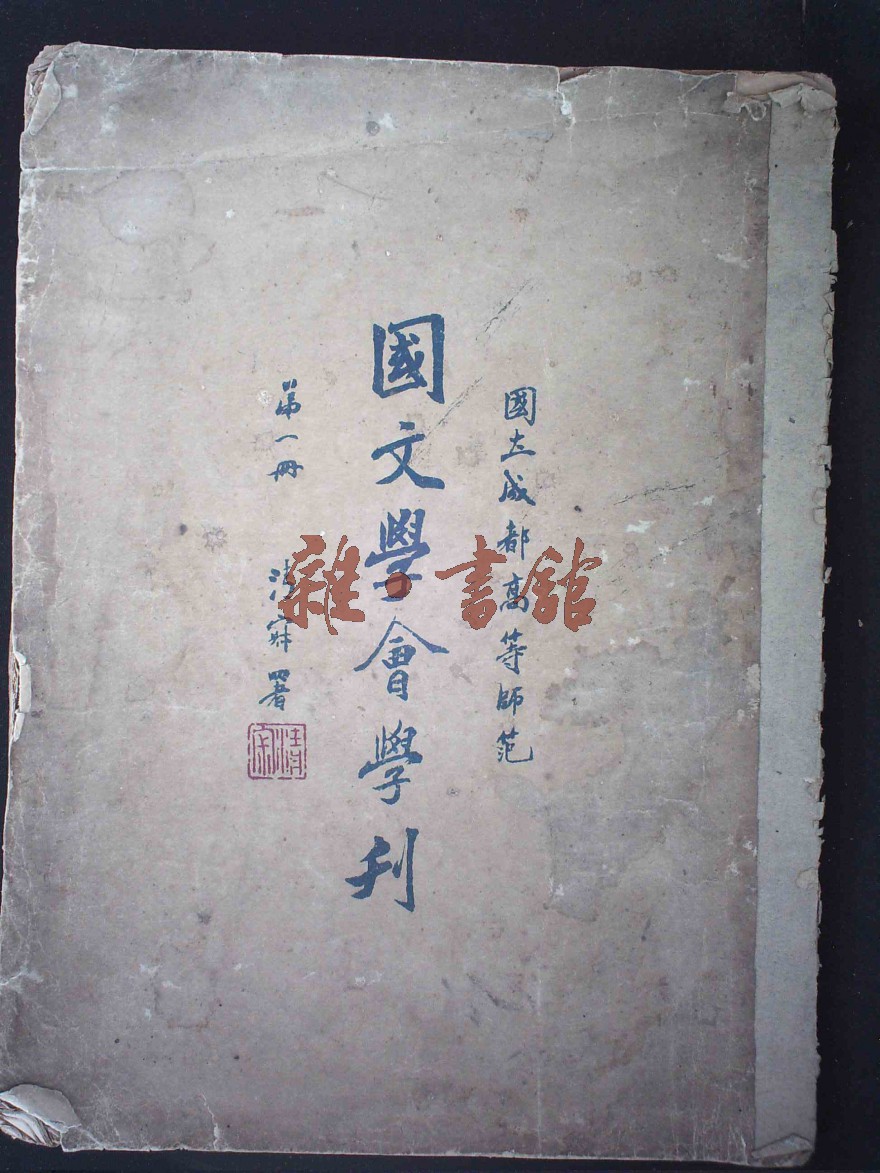 國立成都高等師范
國文學會學刊
第一冊
清寂署
雜·書館